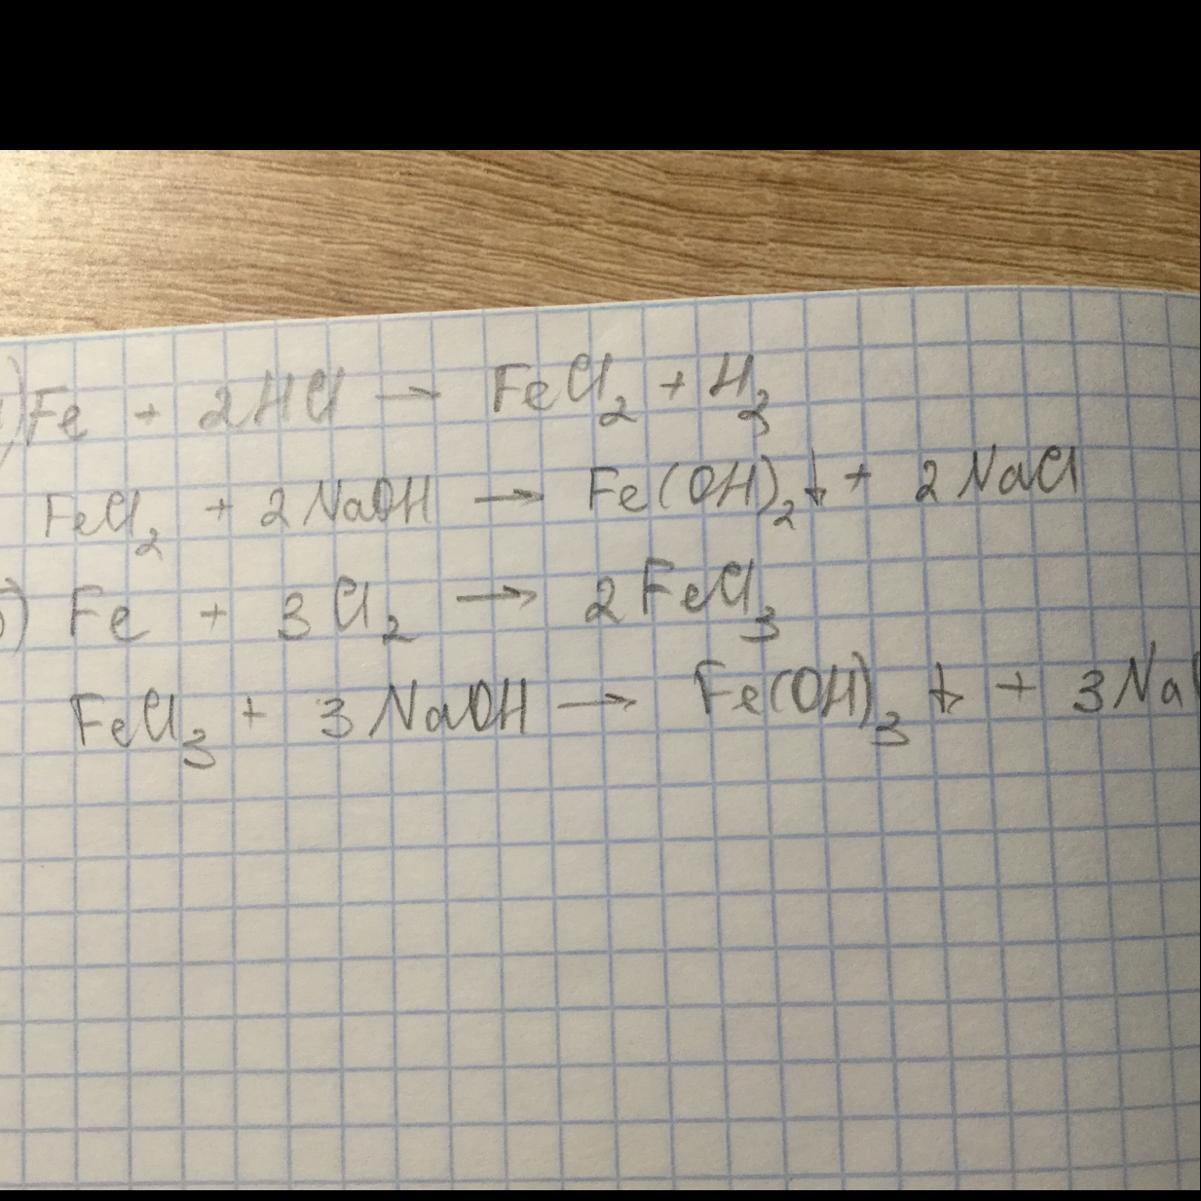 Fe + 2HCl → FeCl₂ + H₂
FeCl₂ + 2NaOH → Fe(OH)₂↓ + 2NaCl
б) Fe + 3Cl₂ → 2FeCl₃
FeCl₃ + 3NaOH → Fe(OH)₃↓ + 3Na